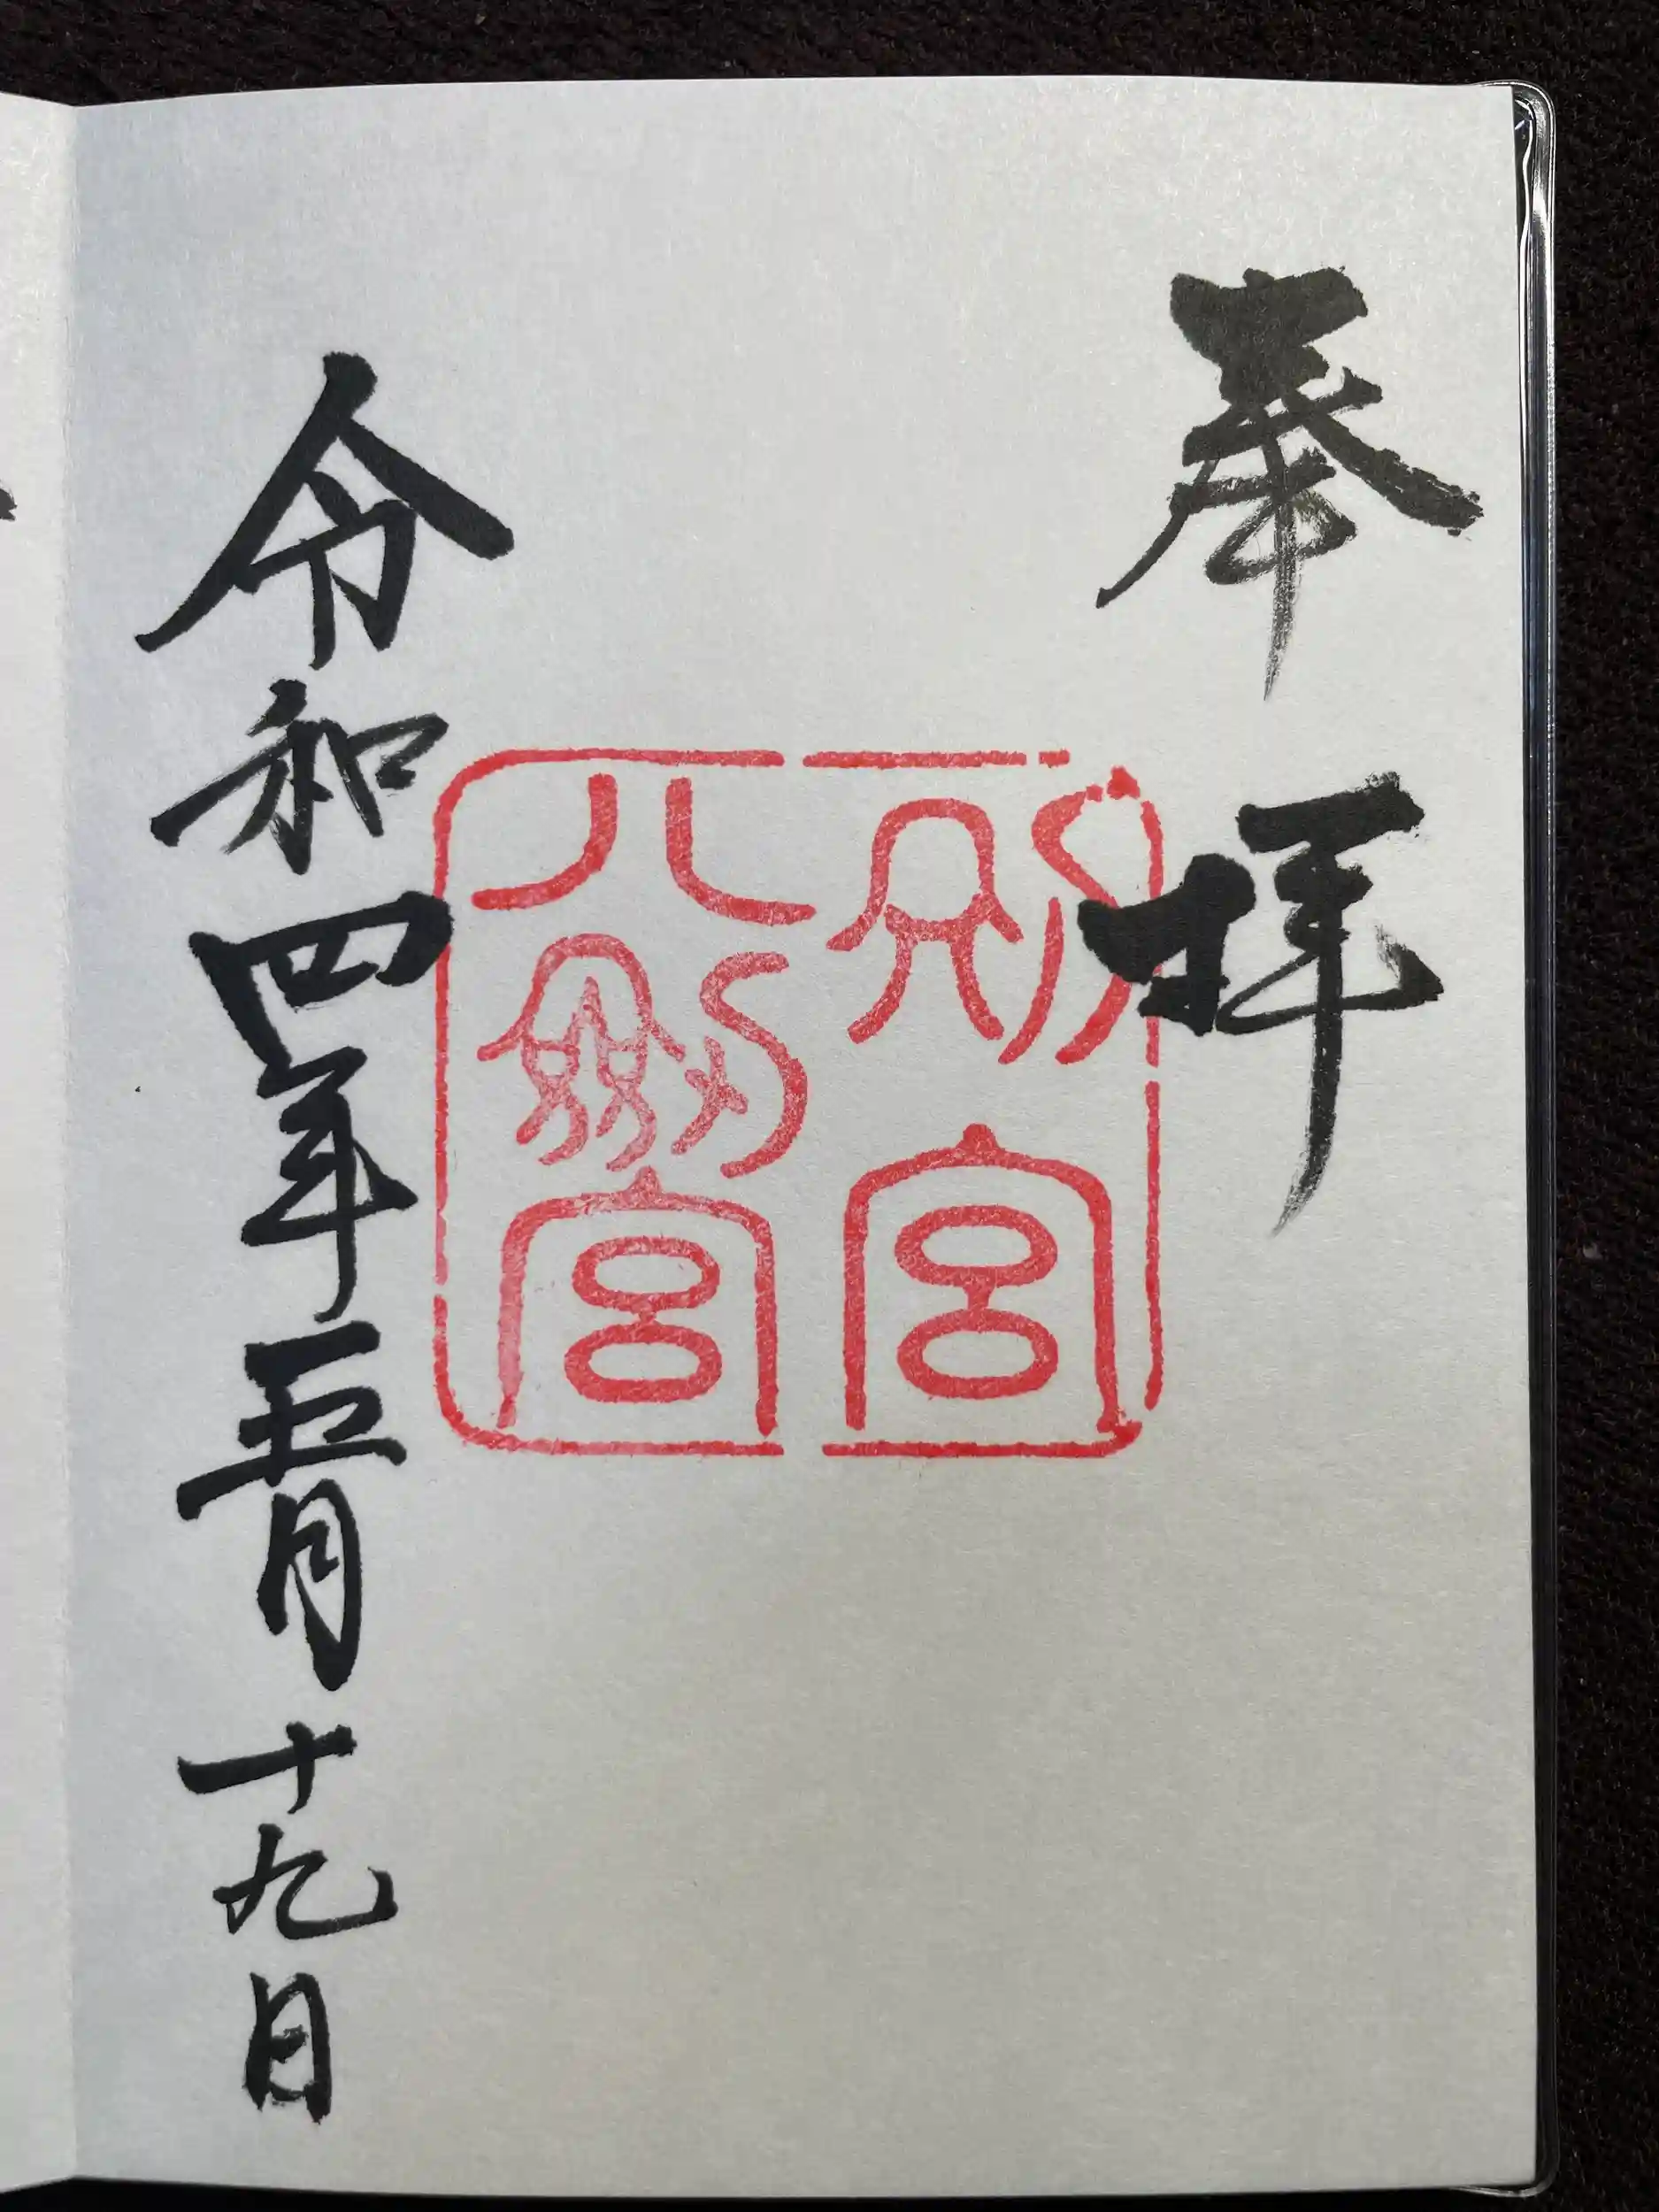 奉拝
別宮
八劔宮
令和四年五月十九日